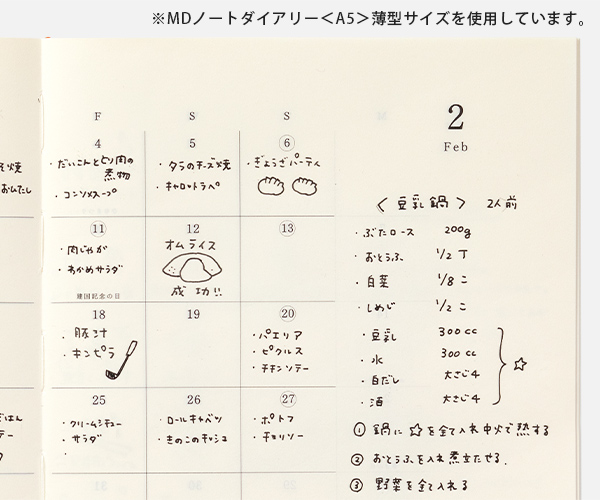 ※MDノートダイアリー＜A5＞薄型サイズを使用しています。
F S S
2
Feb
4 5 6
・だいこんとひき肉の
煮物
・コンソメスープ
・タラのチーズ焼
・キャロットラペ
・ぎょうざパーティ
11 12 13
・肉じゃが
・わかめサラダ
建国記念の日
オムライス
成功!!
18 19 20
・豚汁
・キンピラ
・パエリア
・ピクルス
・チキンソテー
25 26 27
・クリームシチュー
・サラダ
・
・ロールキャベツ
・きのこのキッシュ
・ポトフ
・チョリソー
〈豆乳鍋〉 2人前
・ぶたロース 200g
・おとうふ 1/2丁
・白菜 1/8こ
・しめじ 1/2こ
・豆乳 300cc
・水 300cc
・白だし 大さじ4
・酒 大さじ4
☆
① 鍋に☆を全て入れ中火で熱する
② おとうふを入れ煮立たせる.
③ 野菜を全て入れる